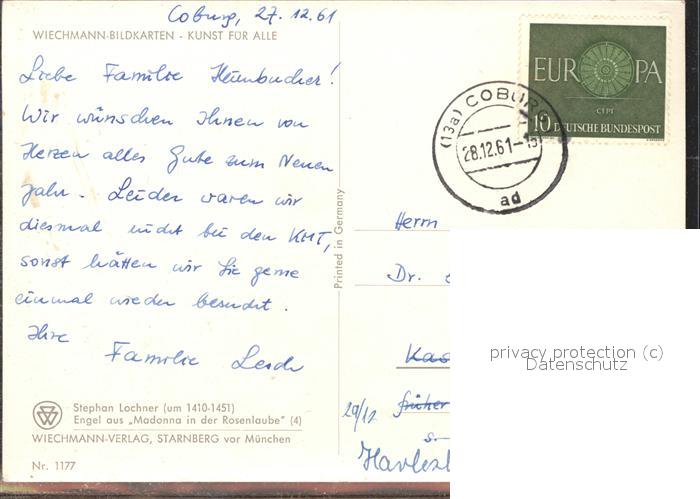 Coburg, 27.12.61
WIECHMANN-BILDKARTEN - KUNST FÜR ALLE
Liebe Familie Heimbucher!
Wir wünschen Ihnen von
Herzen alles Gute zum Neuen
Jahr. Leider waren wir
diesmal nicht bei den KMT,
sonst hätten wir Sie gerne
einmal wieder besucht.
Ihre
Familie
Stephan Lochner (um 1410-1451)
Engel aus „Madonna in der Rosenlaube" (4)
WIECHMANN-VERLAG, STARNBERG vor München
Nr. 1177
Printed in Germany
EUROPA
CEPT
10 DEUTSCHE BUNDESPOST
(13a) COBURG
28.12.61-15
ad
Herrn
Dr.
29/12
früher
privacy protection (c)
Datenschutz